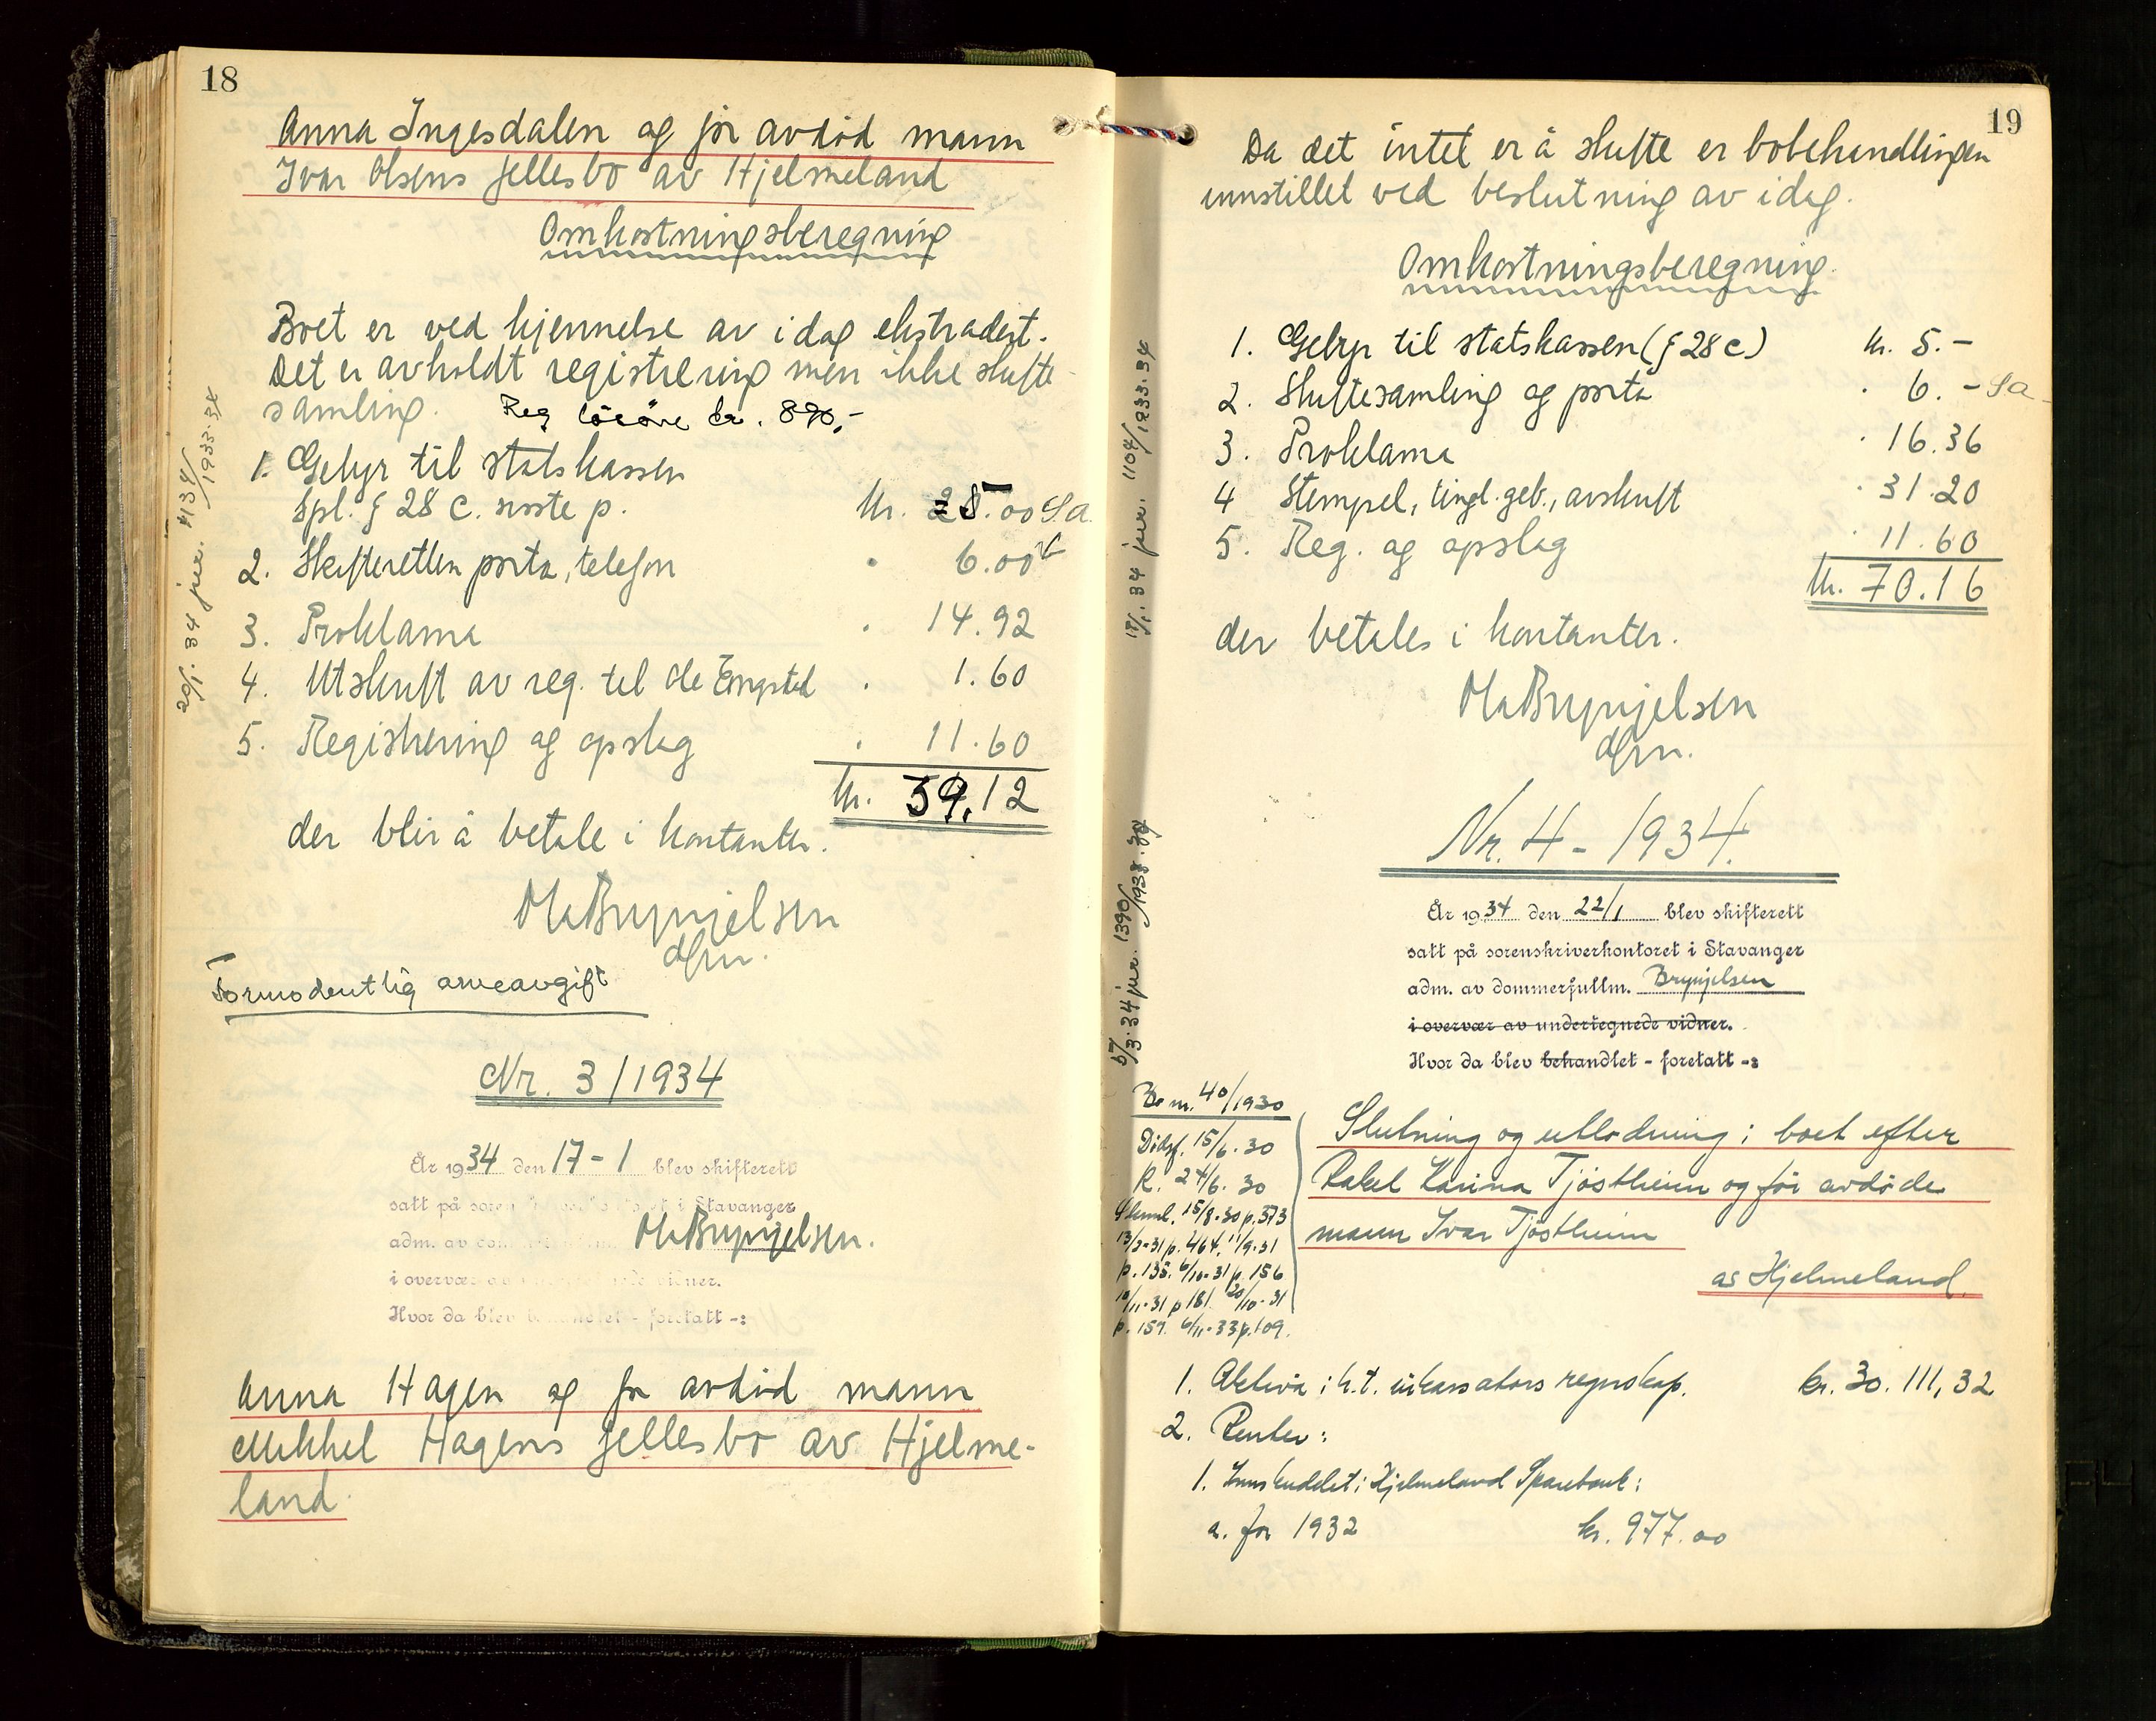 18
Anna Ingesdalen og før avdød mann
Ivar Olsens fellesbo av Hjelmeland
Omkostningsberegning
Boet er ved kjennelse av idag ekstradert.
Det er avholdt registrering men ikke skifte-
samling. Reg løsøre kr. 890,-
1. Gebyr til statskassen
Spl. § 28 c. siste p. kr. 5.00 Sa.
2. Skifteretten porto, telefon " 6.00
3. Proklama " 14.92
4. Utskrift av reg. til de Engsted " 1.60
5. Registrering og opslag " 11.60
kr. 39,12
der blir å betale i kontanter.
Ola Brynjelsen
dfm.
Formodentlig arveavgift
20/1. 34 jur. 1134/1933-34
Nr. 3/1934
År 1934 den 17-1 blev skifterett
satt på soren i Stavanger
adm. av Ola Brynjelsen.
i overvær av vidner.
Hvor da blev behandlet - foretatt -:
Anna Hagen og før avdød mann
Mikkel Hagens fellesbo av Hjelme-
land.
19
Da det intet er å skifte er bobehandlingen
innstillet ved beslutning av idag.
Omkostningsberegning.
1. Gebyr til statskassen (§ 28 c) kr. 5.-
2. Skiftesamling og porto " 6.- Sa
3. Proklama " 16.36
4 Stempel, tingl. geb., avskrift " 31.20
5. Reg. og opslag " 11.60
kr. 70.16
der betales i kontanter.
Ola Brynjelsen
dfm.
18/1. 34 jur. 1104/1933-34
Nr. 4 - 1934.
År 1934 den 22/1 blev skifterett
satt på sorenskriverkontoret i Stavanger
adm. av dommerfullm. Brynjelsen
i overvær av undertegnede vidner.
Hvor da blev behandlet - foretatt -:
5/3.34 jur. 1390/1933.34
Bo nr. 40/1930
Dødsf. 15/6.30
R. 24/6. 30
Skml. 15/8-30 p. 373
13/3-31 p. 464. 11/9-31
p. 135. 6/10-31 p. 156
10/11-31 p 181. 20/10-31
p. 159. 6/11-33 p. 109.
Slutning og utlodning i boet efter
Rakel Karina Tjøstheim og før avdøde
mann Ivar Tjøstheim
av Hjelmeland.
1. Aktiva i h.t. inkassators regnskap. kr. 30.111,32
2. Renter:
1. Innskuddet i Hjelmeland Sparebank:
a. for 1932 kr. 977.00